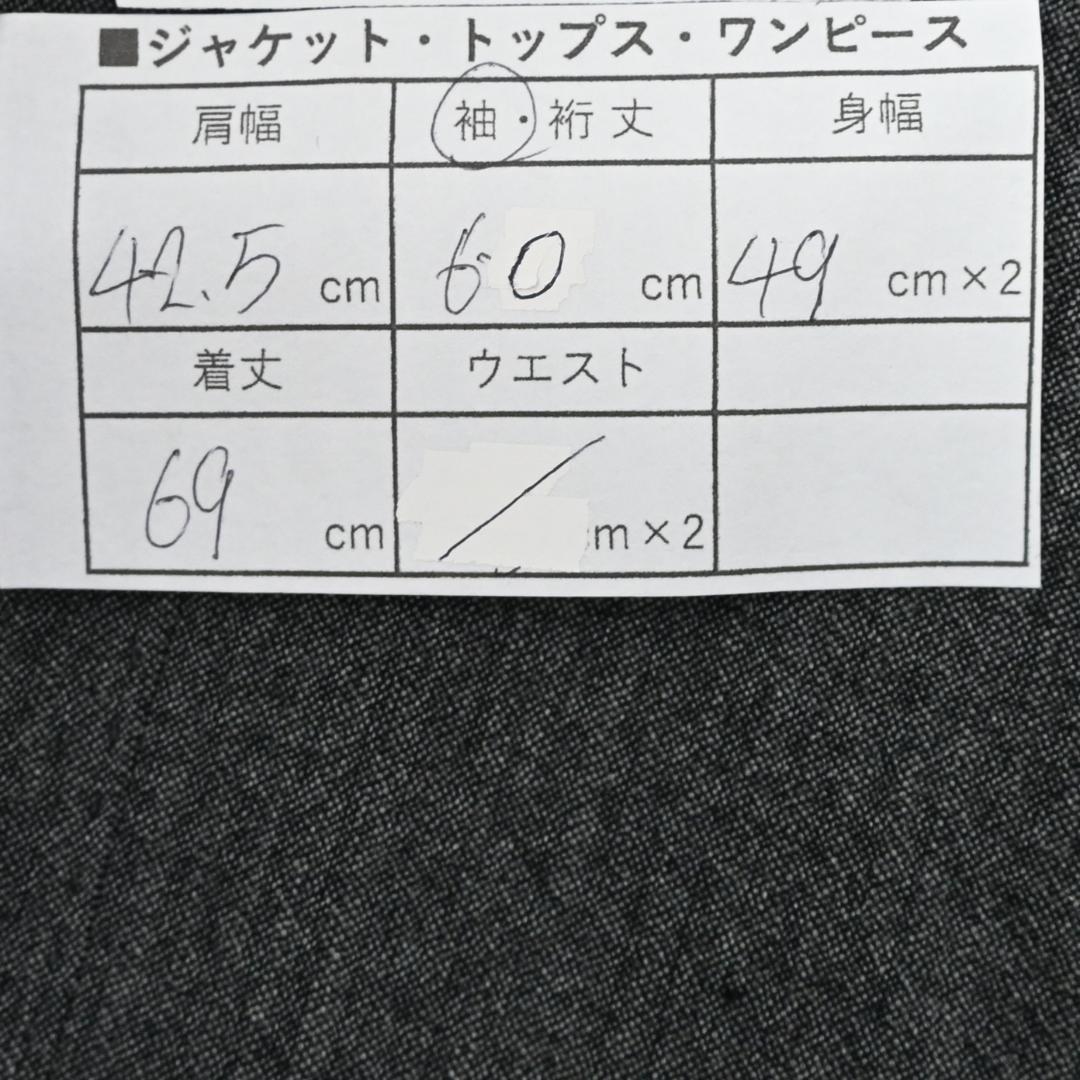 ■ジャケット・トップス・ワンピース
肩幅 袖・裄丈 身幅
42.5 cm 60 cm 49 cm×2
着丈 ウエスト
69 cm / m×2